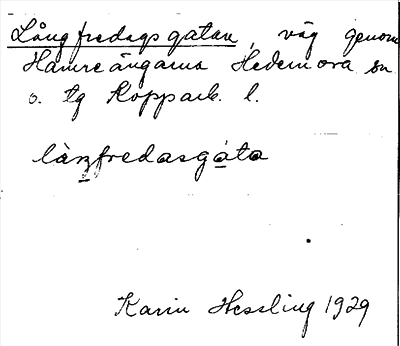 Långfredagsgatan, väg genom
Hamreängarna Hedemora sn
o. tg Kopparb. l.
lànfredasgáta
Karin Hessling 1929